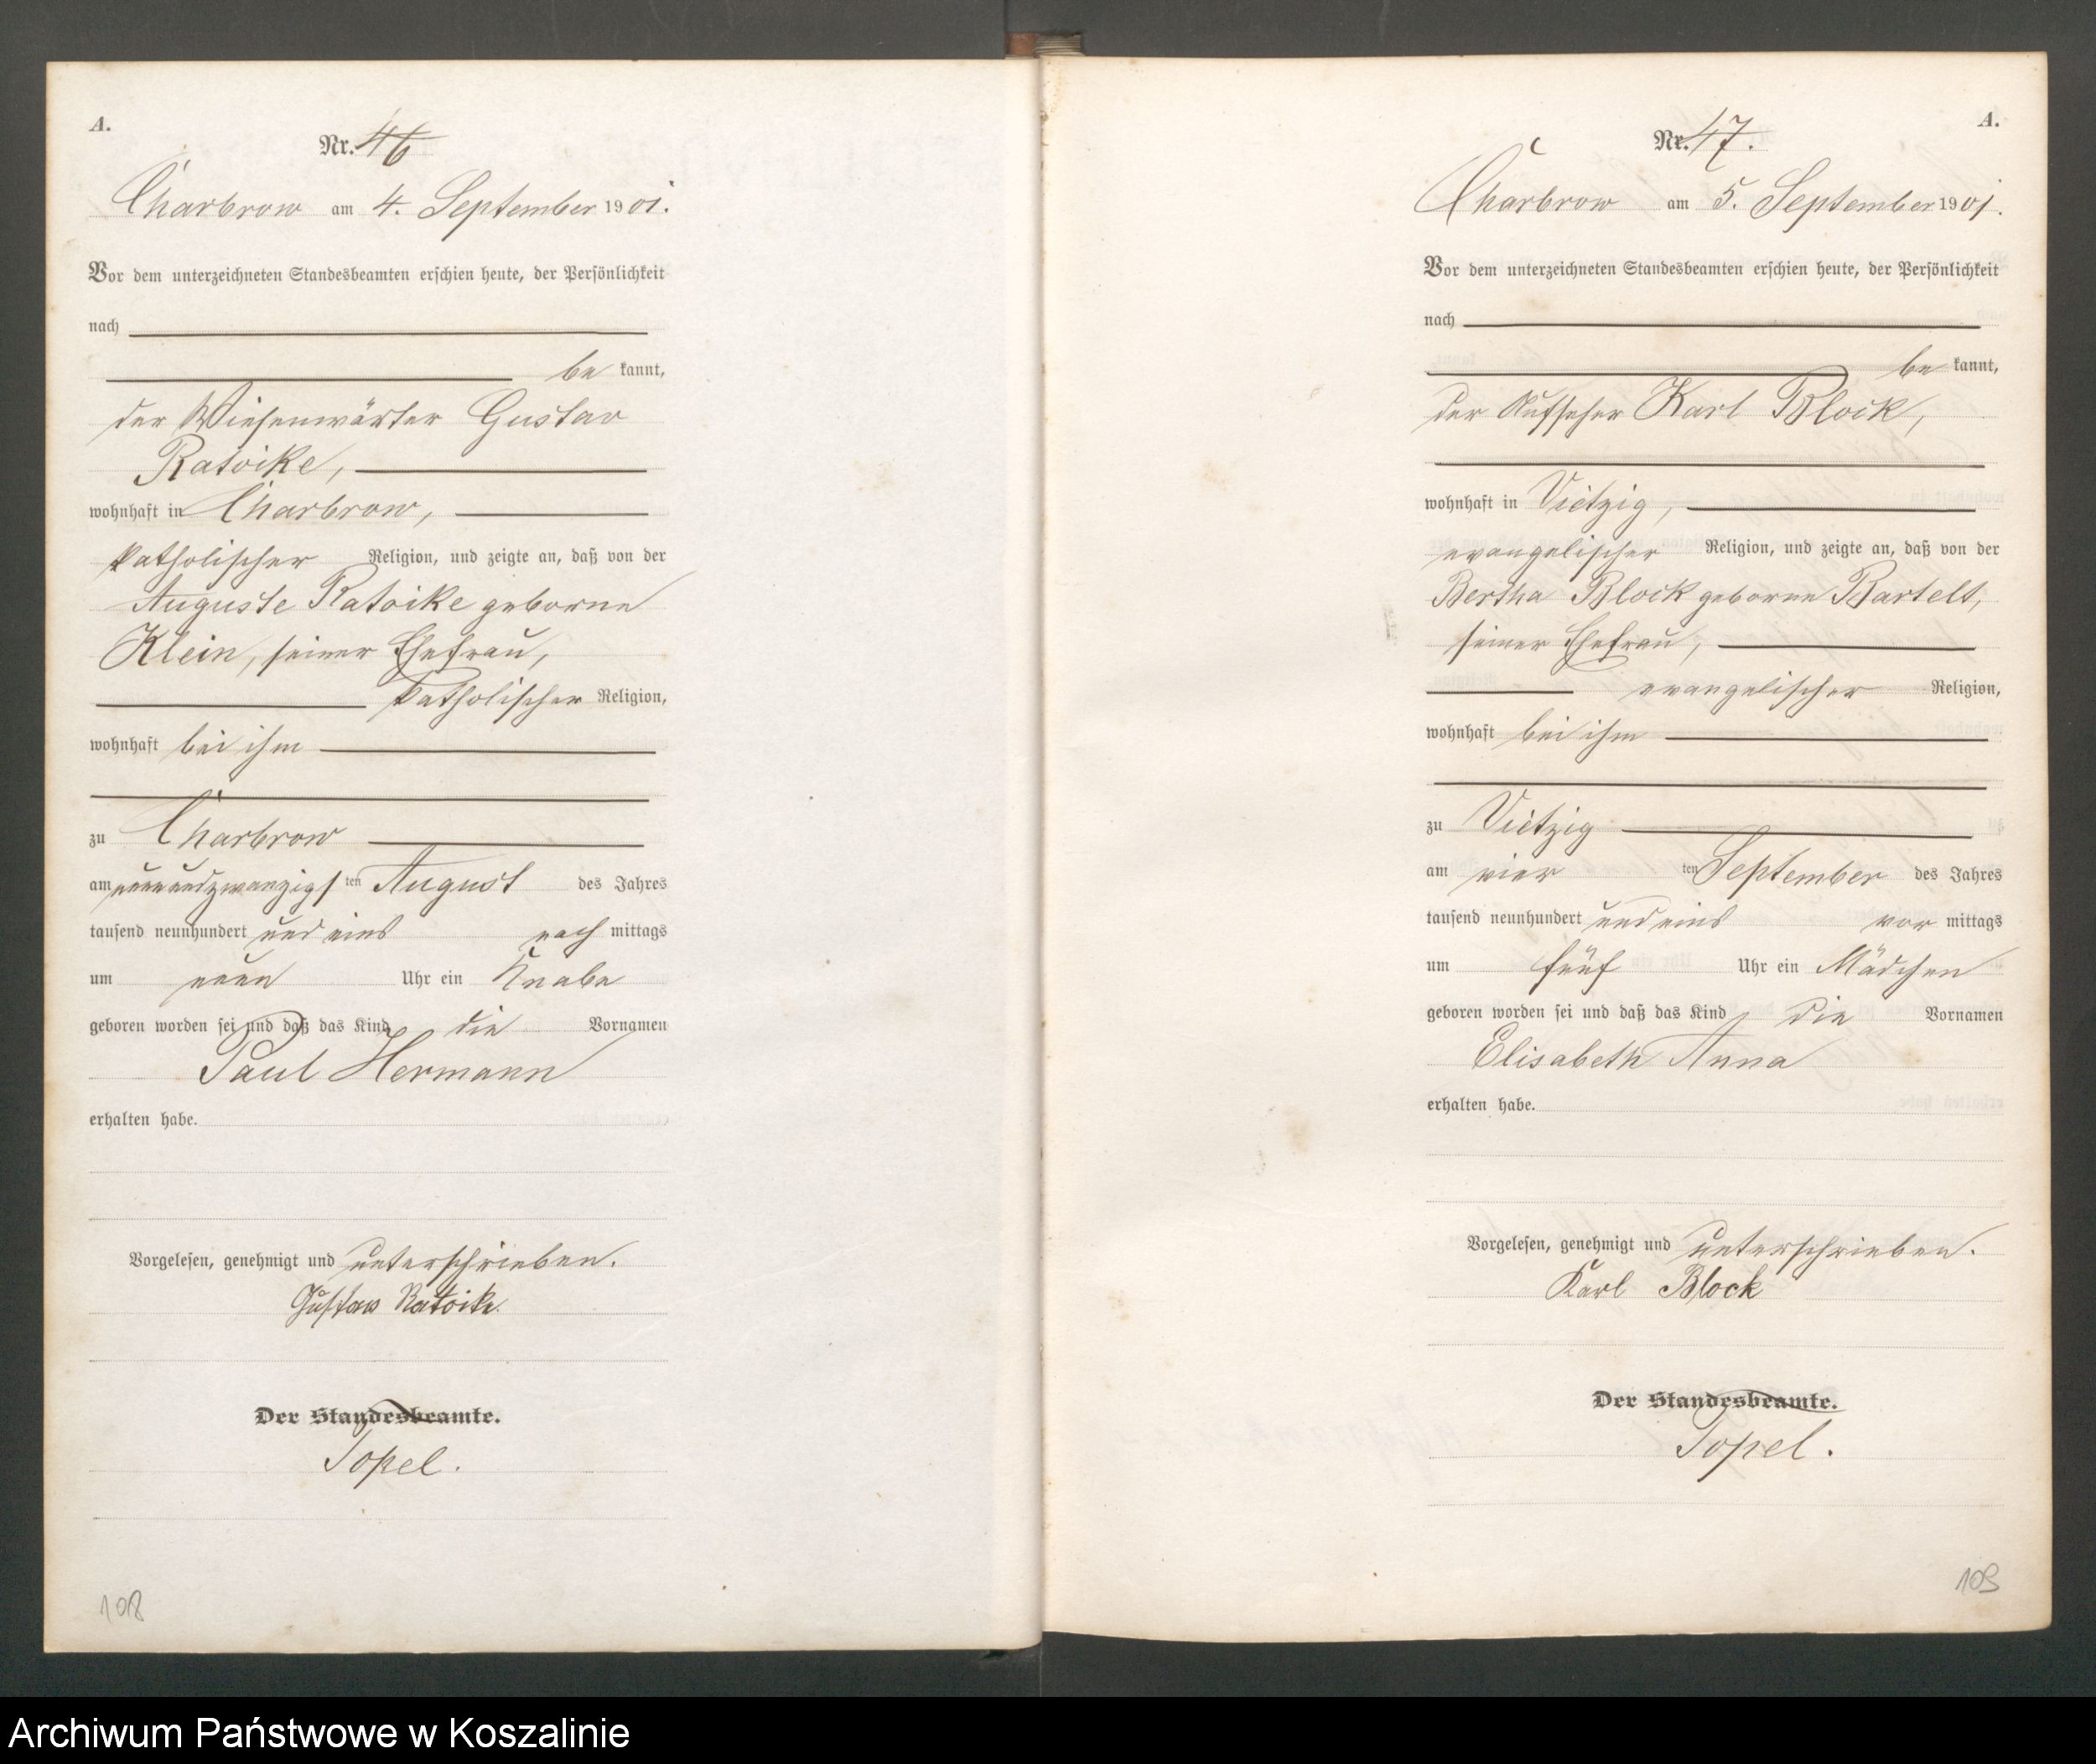 A.
Nr. 46
Charbrow am 4. September 1901.
Vor dem unterzeichneten Standesbeamten erschien heute, der Persönlichkeit
nach
be kannt,
der Wiesenwärter Gustav
Ratoike,
wohnhaft in Charbrow,
katholischer Religion, und zeigte an, daß von der
Auguste Ratoike geborne
Klein, seiner Ehefrau,
katholischer Religion,
wohnhaft bei ihm
zu Charbrow
am neunundzwanzigsten August des Jahres
tausend neunhundert und eins nach mittags
um neun Uhr ein Knabe
geboren worden sei und daß das Kind die Vornamen
Paul Hermann
erhalten habe.
Vorgelesen, genehmigt und unterschrieben.
Gustav Ratoike
Der Standesbeamte.
Topel.
108
A.
Nr. 47.
Charbrow am 5. September 1901.
Vor dem unterzeichneten Standesbeamten erschien heute, der Persönlichkeit
nach
be kannt,
der Aufseher Karl Block,
wohnhaft in Vietzig,
evangelischer Religion, und zeigte an, daß von der
Bertha Block geborne Bartelt,
seiner Ehefrau,
evangelischer Religion,
wohnhaft bei ihm
zu Vietzig
am vier ten September des Jahres
tausend neunhundert und eins vor mittags
um fünf Uhr ein Mädchen
geboren worden sei und daß das Kind die Vornamen
Elisabeth Anna
erhalten habe.
Vorgelesen, genehmigt und unterschrieben.
Karl Block
Der Standesbeamte.
Topel.
109
Archiwum Państwowe w Koszalinie